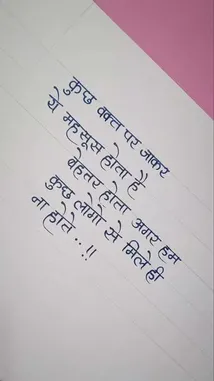 कुछ वक्त पर जाकर
ये महसूस होता है
बेहतर होता अगर हम
कुछ लोगों से मिले ही
ना होते...!!